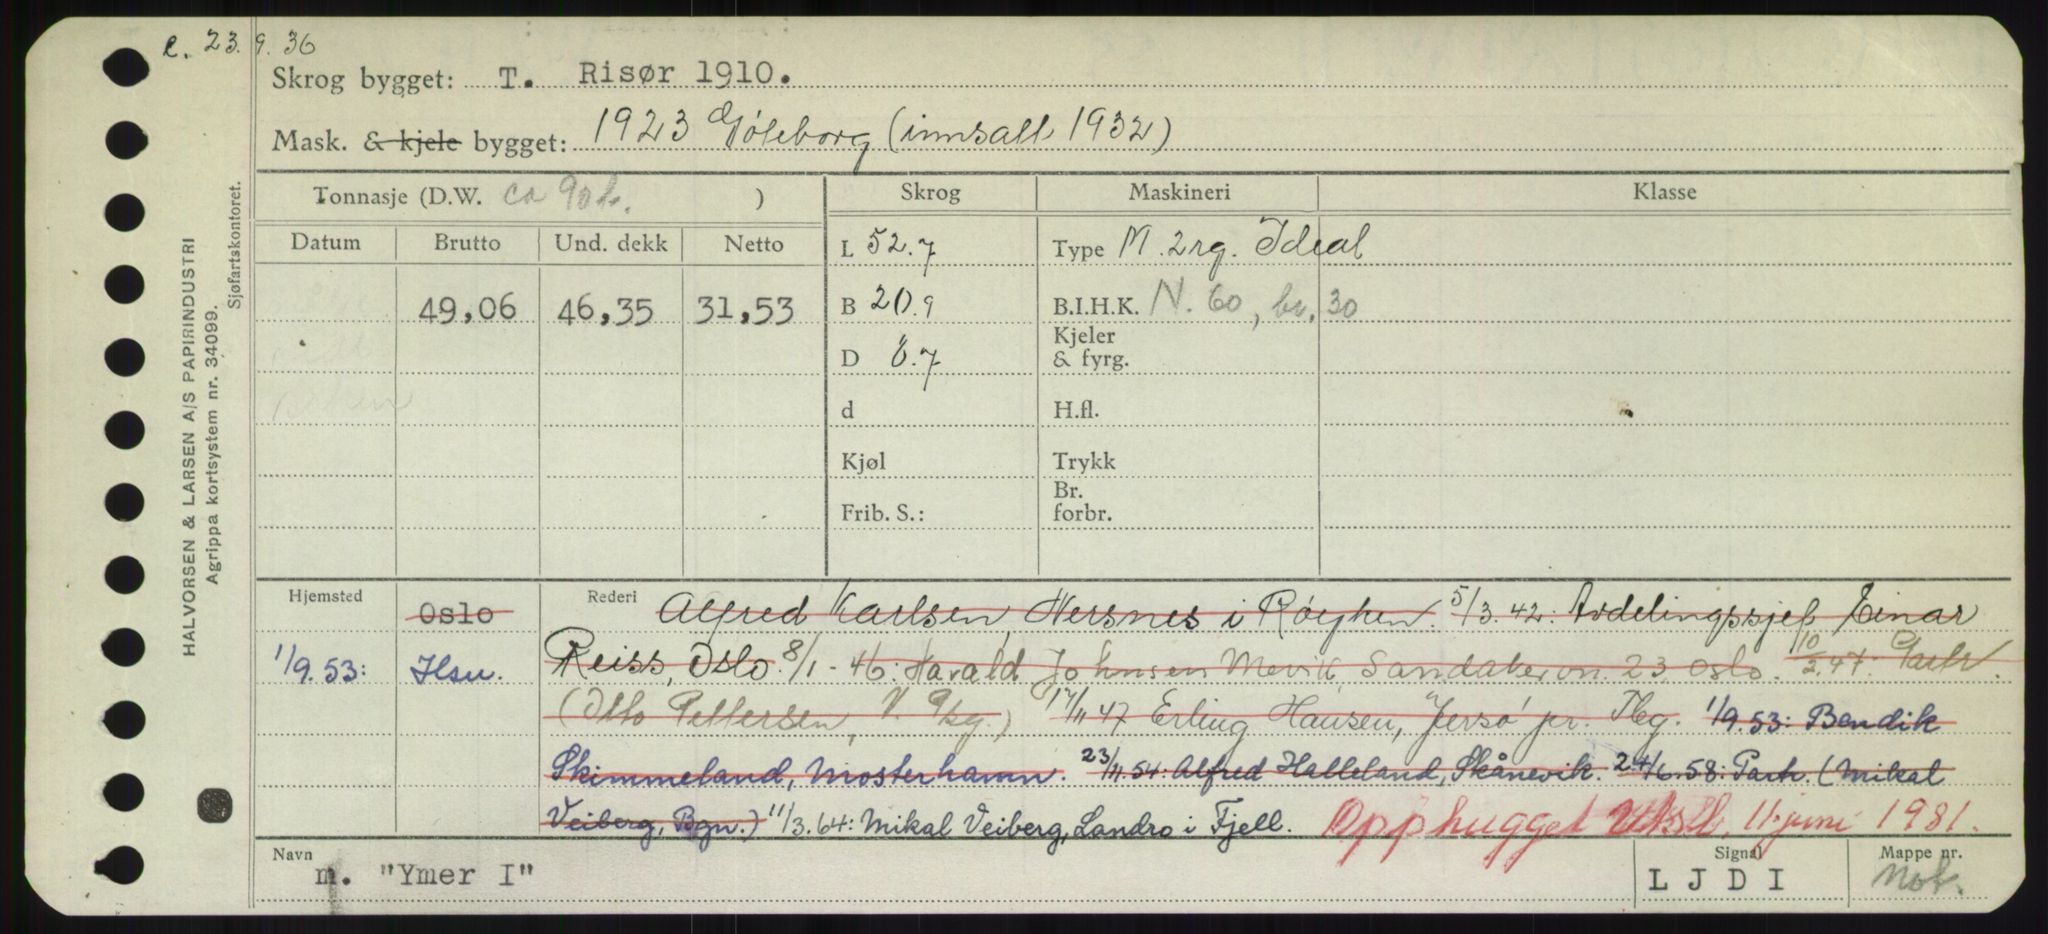 e. 23.9.36
Skrog bygget: T. Risør 1910.
Mask. & kjele bygget: 1923 Göteborg (innsatt 1932)
HALVORSEN & LARSEN A/S PAPIRINDUSTRI
Agrippa kortsystem nr. 34099.
Sjøfartskontoret.
Tonnasje (D.W. ca 90 t. ) Skrog Maskineri Klasse
Datum Brutto Und. dekk Netto L 52.7 Type M. 2rg. Ideal
49,06 46,35 31,53 B 20.9 B.I.H.K. N. 60, br. 30
D 6.7 Kjeler & fyrg.
d H.fl.
Kjøl Trykk
Frib. S.: Br. forbr.
Hjemsted Oslo Rederi Alfred Karlsen, Nersnes i Røyken. 5/3.42: Avdelingssjef Einar
1/9.53: Hsu. Reiss, Oslo. 8/1-46: Harald Johnsen Mevik, Sandakervn. 23, Oslo. 10/2.47: Partr.
(Otto Pettersen, V. ) 17/11 47 Erling Hansen, "Jersø" pr. Tbg. 1/9.53: Bendik
Skimmeland, Mosterhamn. 23/11.54: Alfred Halleland, Skånevik. 24/6.58: Partr. (Mikal
Veiberg, Bgn.) 11/3.64: Mikal Veiberg, Landro i Fjell. Opphugget 11. juni 1981.
Navn m. "Ymer I" Signal L J D I Mappe nr. Mot.